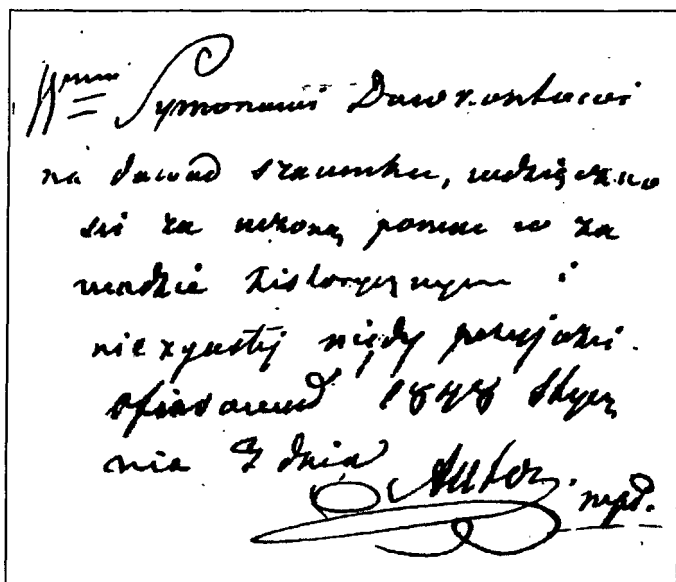 Wmu Symonowi Dowkontowi
na dowód szacunku, wdzięczno
ści za uczoną pomoc w za
wodzie historycznym i
niezgasłéj nigdy przyjaźni.
ofiarował 1848 Stycz
nia 7 dnia
Autor. mpr.